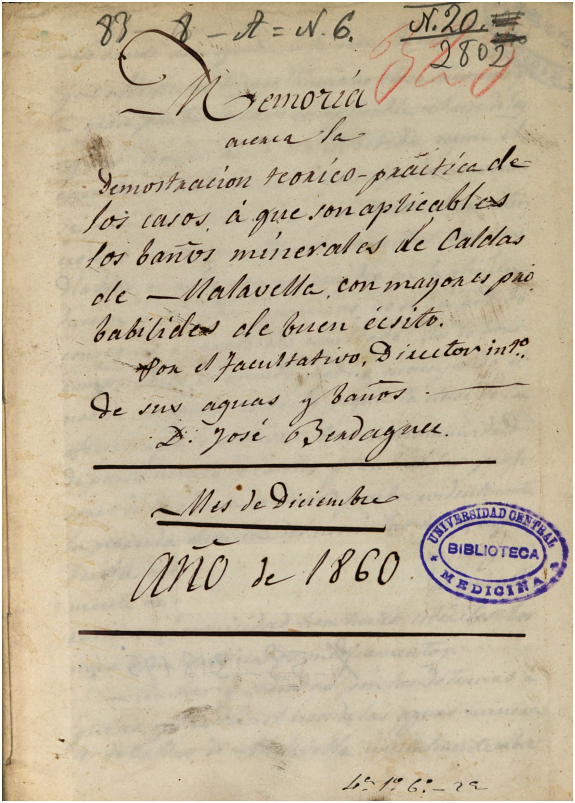 83-8-A=N.6.
N.20.
2802
Memoria
acerca la
Demostracion teorico-práctica de
los casos, á que son aplicables
los baños minerales de Caldas
de Malavella, con mayores pro
babilides de buen écsito.
Por el facultativo, Director intº.
de sus aguas y baños.
D.n José Berdaguer.
Mes de Diciembre
AÑO de 1860
UNIVERSIDAD CENTRAL
BIBLIOTECA
MEDICINA